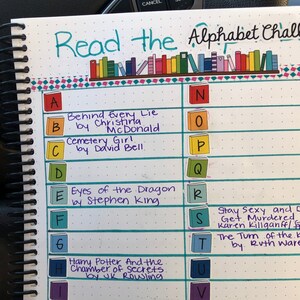 CANCEL
Read the Alphabet Chall
A
N
B Behind Every Lie
by Christina
McDonald
O
C Cemetery Girl
by David Bell
P
D
Q
E Eyes of the Dragon
by Stephen King
R
F
S Stay Sexy and
Get Murdered
Karen Kilgariff/
G
T The Turn of the K
by Ruth Ware
H Harry Potter And the
Chamber of Secrets
by JK Rowling
U
I
V